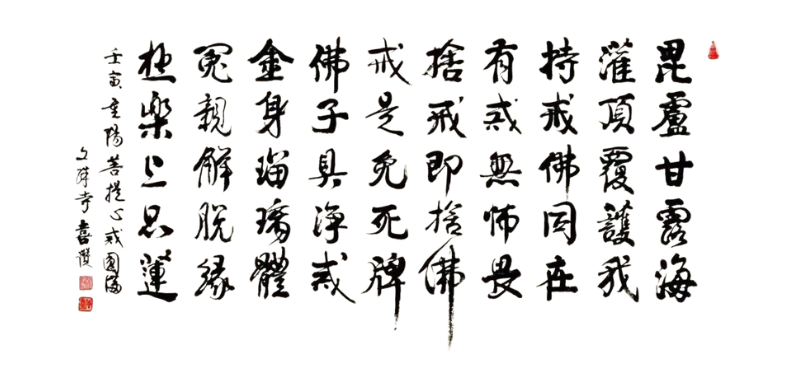 毘盧甘露海
灌頂覆護我
持戒佛同在
有戒無怖畏
捨戒即捨佛
戒是免死牌
佛子具淨戒
金身瑠璃體
冤親解脫緣
極樂上品蓮
壬寅重陽菩提心戒圓滿
文殊寺喜饶